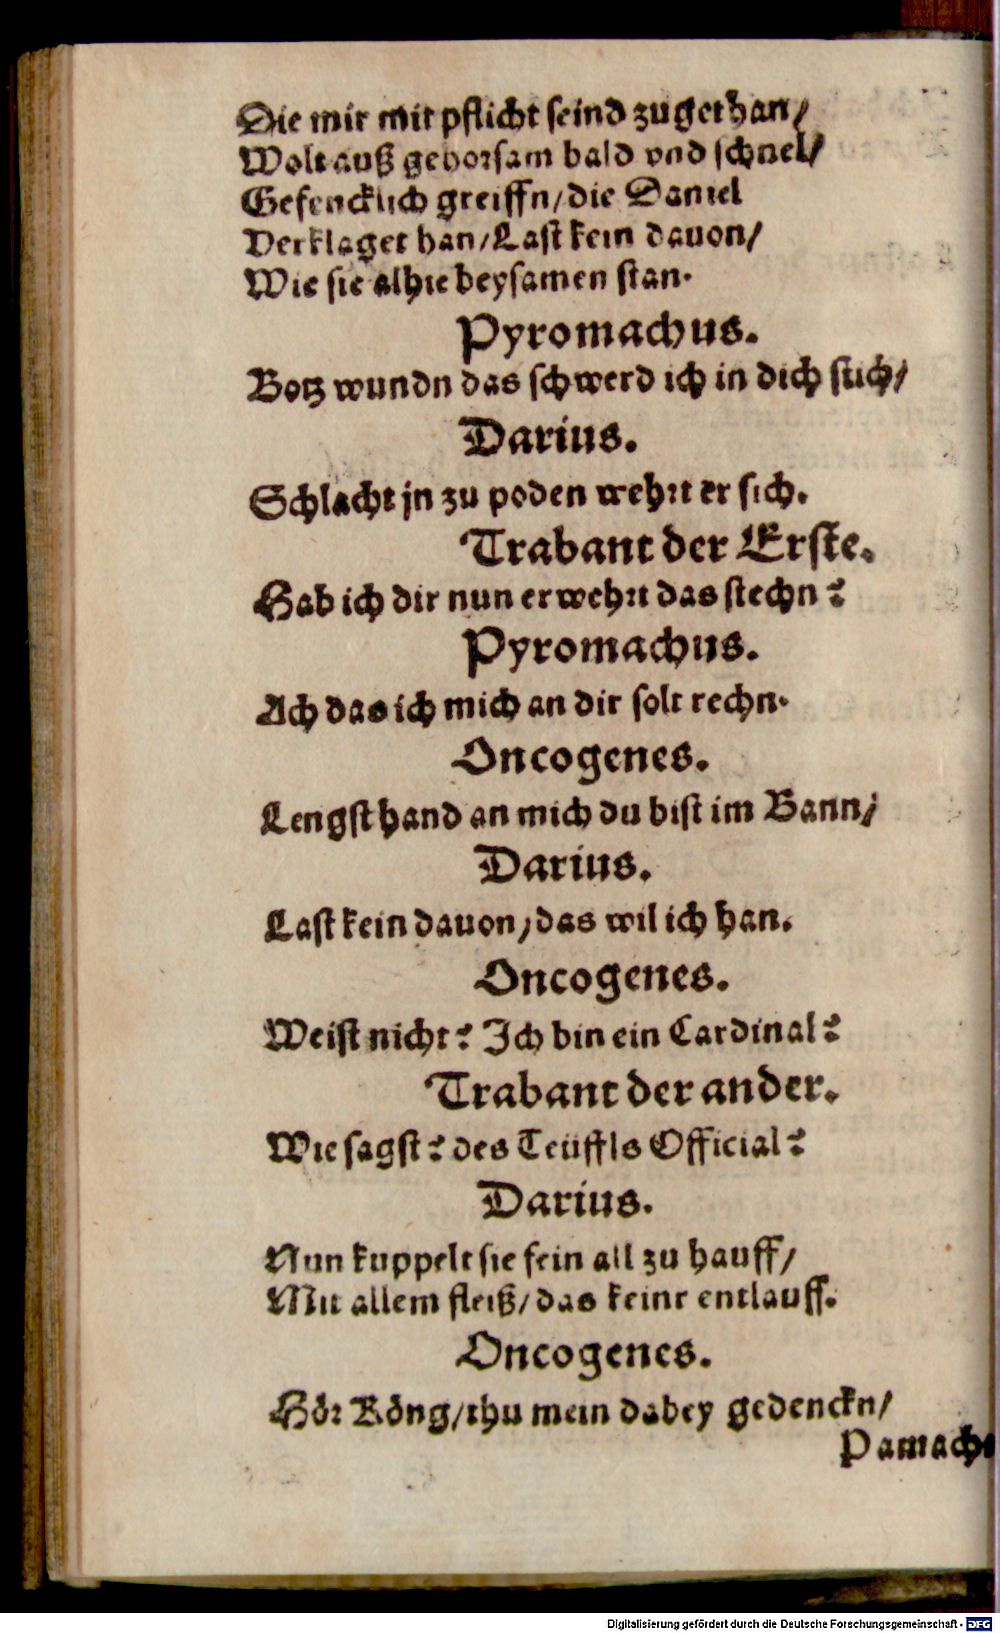 Die mir mit pflicht seind zugethan/
Wolt auß gehorsam bald vnd schnel/
Gefencklich greiffn/die Daniel
Verklaget han/Last kein dauon/
Wie sie alhie beysamen stan.
Pyromachus.
Botz wundn das schwerd ich in dich stich/
Darius.
Schlacht jn zu poden wehrt er sich.
Trabant der Erste.
Hab ich dir nun erwehrt das stechn?
Pyromachus.
Ach das ich mich an dir solt rechn.
Oncogenes.
Lengst hand an mich du bist im Bann/
Darius.
Last kein dauon/das wil ich han.
Oncogenes.
Weist nicht? Ich bin ein Cardinal?
Trabant der ander.
Wie sagst? des Teuffls Official?
Darius.
Nun kuppelt sie fein all zu hauff/
Mit allem fleiß/das keinr entlauff.
Oncogenes.
Hör Köng/thu mein dabey gedenckn/
Pamach
Digitalisierung gefördert durch die Deutsche Forschungsgemeinschaft - DFG